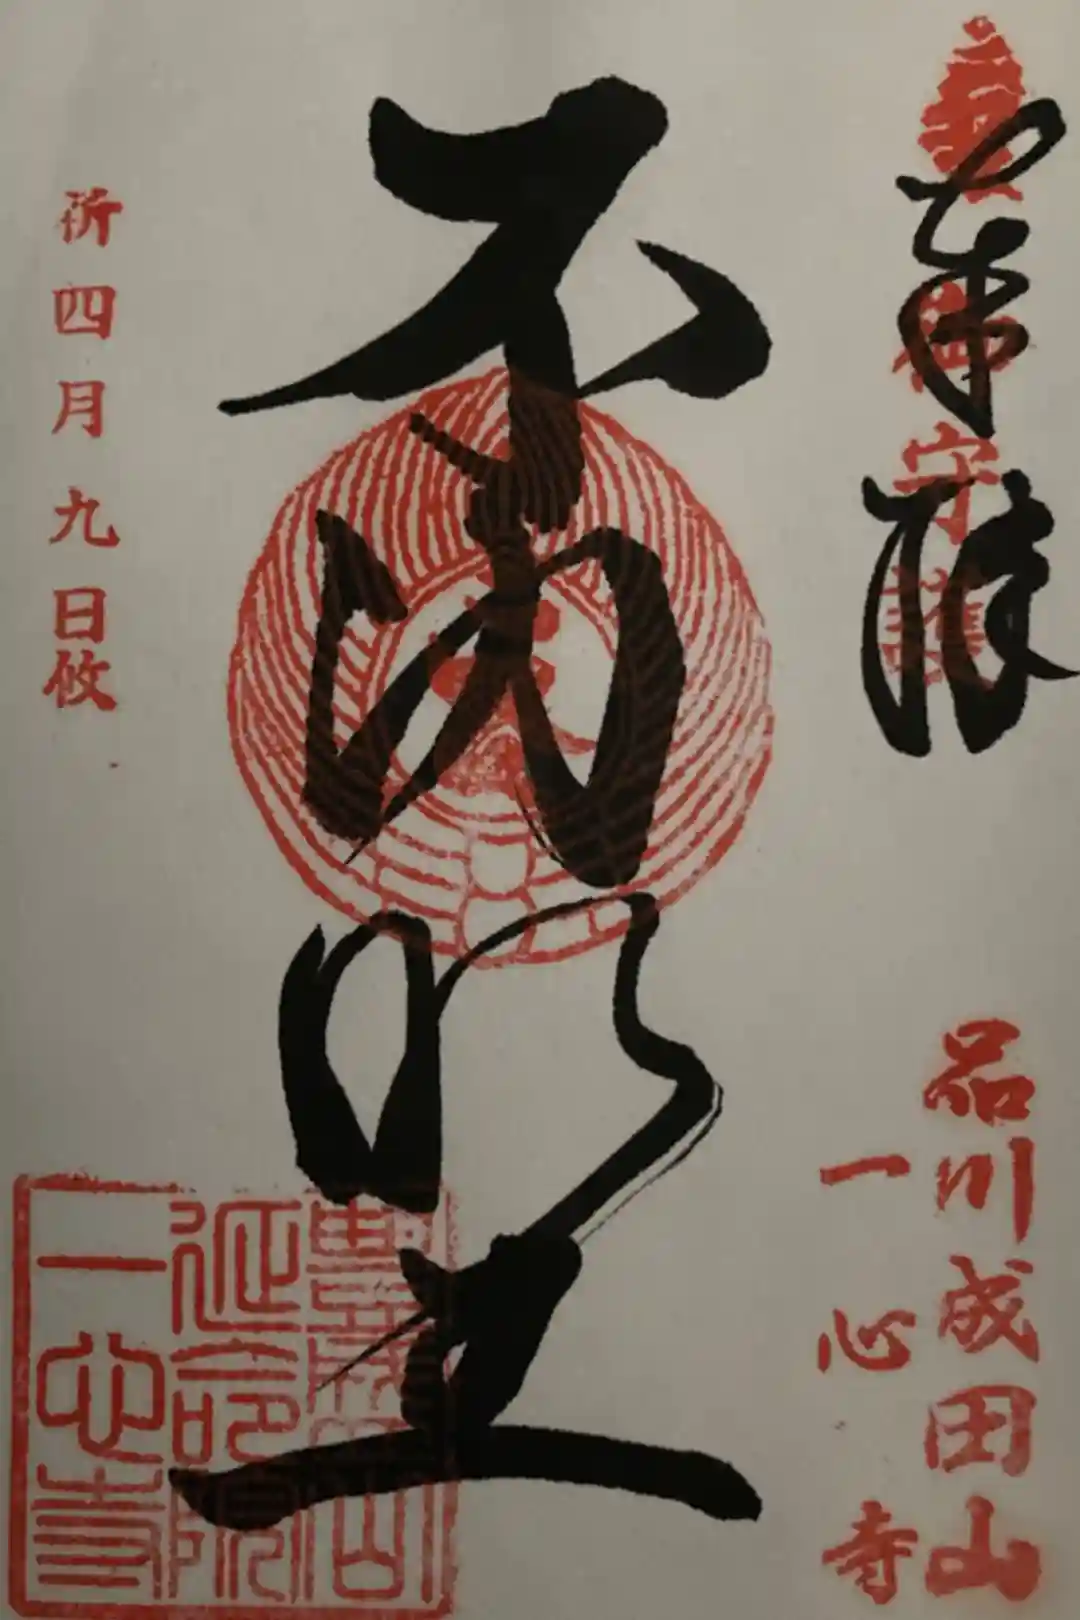 奉拝
御守護
品川成田山
一心寺
不動明王
祈四月九日攸
豊盛山
延命院
一心寺